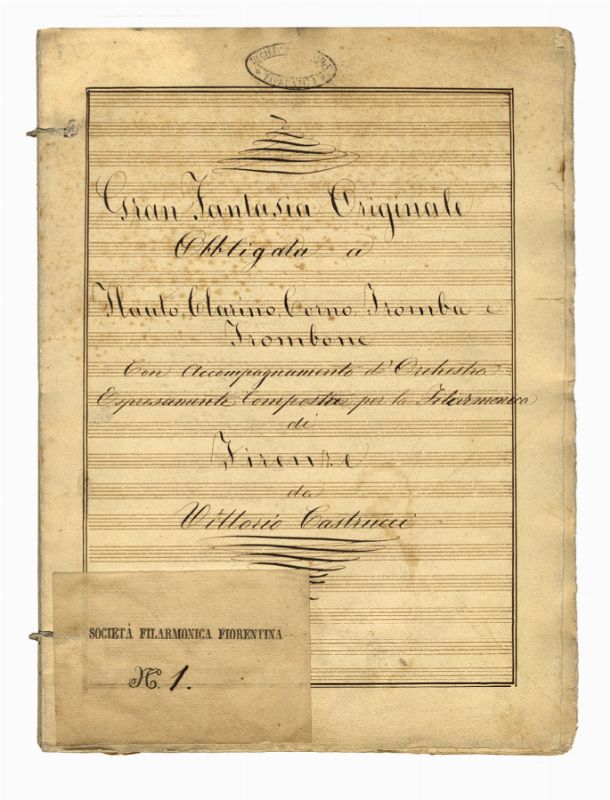 Gran Fantasia Originale
Obbligata a
Flauto, Clarino, Corno, Tromba e
Trombone
Con Accompagnamento d'Orchestra
Espresamente Composta per la Filarmonica
di
Firenze
da
Vittorio Castrucci
SOCIETÀ FILARMONICA FIORENTINA
N.º 1.